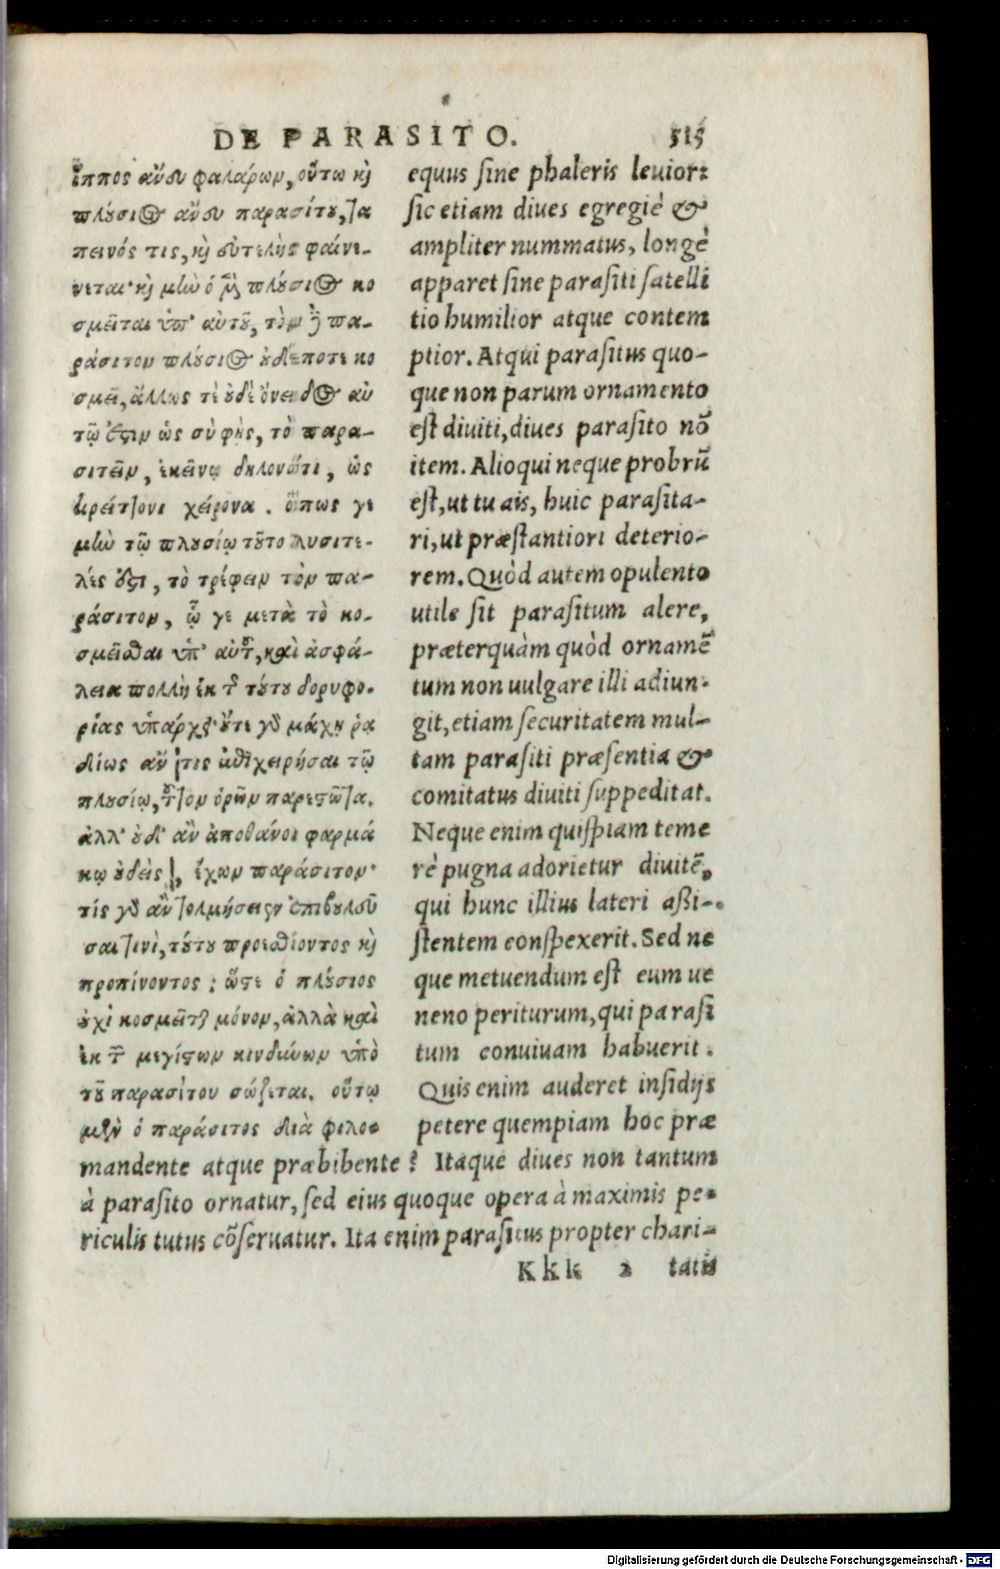 DE PARASITO. 515
ἵππος ἄνευ φαλάρων, οὕτω καὶ
πλούσιος ἄνευ παρασίτου, τα
πεινός τις, καὶ εὐτελὴς φαίνε-
νεται· καὶ μὴν ὁ μὲν πλούσιος κο
σμεῖται ὑπ' αὐτοῦ, τὸν δὲ πα-
ράσιτον πλούσιος οὐδέποτε κο
σμεῖ, ἄλλως τε οὐδὲ ὄνειδος αὐ
τῷ ἐστιν ὡς σὺ φῂς, τὸ παρα-
σιτεῖν, ἐκείνῳ δηλονότι, ὡς
κρείττονι χείρονα. ὅπως γε
μὴν τῷ πλουσίῳ τοῦτο λυσιτε-
λές ἐστι, τὸ τρέφειν τὸν πα-
ράσιτον, ᾧ γε μετὰ τὸ κο-
σμεῖσθαι ὑπ' αὐτοῦ, καὶ ἀσφά-
λεια πολλὴ ἐκ τῆς τούτου δορυφο-
ρίας ὑπάρχει· οὔτε γὰρ μάχῃ ῥα
δίως ἄν τις ἐπιχειρήσαι τῷ
πλουσίῳ, τοῦτον ὁρῶν παρεστῶτα.
ἀλλ' οὐδ' ἂν ἀποθάνοι φαρμά
κῳ οὐδεὶς, ἔχων παράσιτον·
τίς γὰρ ἂν τολμήσειεν ἐπιβουλεῦ
σαι τινὶ, τούτου προεσθίοντος καὶ
προπίνοντος; ὥστε ὁ πλούσιος
οὐχὶ κοσμεῖται μόνον, ἀλλὰ καὶ
ἐκ τῶν μεγίστων κινδύνων ὑπὸ
τοῦ παρασίτου σώζεται. οὕτω
μὲν ὁ παράσιτος διὰ φιλο-
equus sine phaleris leuior:
sic etiam diues egregiè &
ampliter nummatus, longè
apparet sine parasiti satelli
tio humilior atque contem
ptior. Atqui parasitus quo-
que non parum ornamento
est diuiti, diues parasito nō
item. Alioqui neque probrū
est, ut tu ais, huic parasita-
ri, ut præstantiori deterio-
rem. Quòd autem opulento
utile sit parasitum alere,
præterquàm quòd ornamē
tum non uulgare illi adiun-
git, etiam securitatem mul-
tam parasiti præsentia &
comitatus diuiti suppeditat.
Neque enim quispiam teme
rè pugna adorietur diuitē,
qui hunc illius lateri assi-
stentem conspexerit. Sed ne
que metuendum est eum ue
neno periturum, qui parasi
tum conuiuam habuerit.
Quis enim auderet insidijs
petere quempiam hoc præ
mandente atque præbibente? Itaque diues non tantum
à parasito ornatur, sed eius quoque opera à maximis pe-
riculis tutus cōseruatur. Ita enim parasitus propter chari-
Kkk 2 tatis
Digitalisierung gefördert durch die Deutsche Forschungsgemeinschaft - DFG